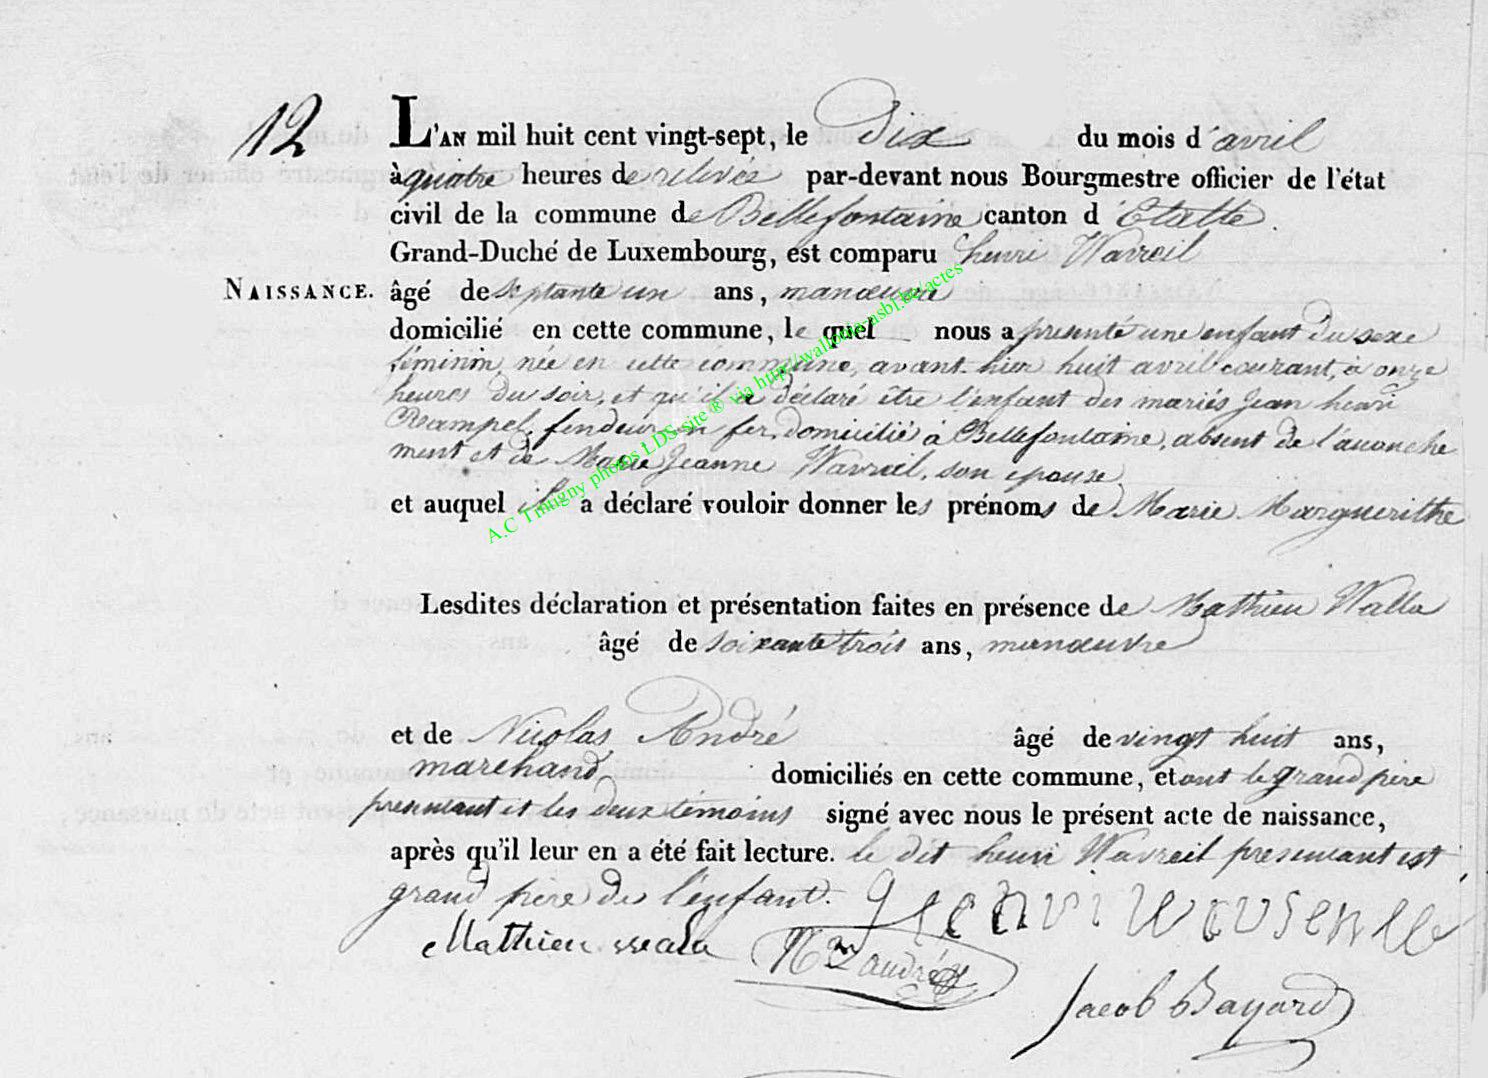 12
L'AN mil huit cent vingt-sept, le Dix du mois d'avril
à quatre heures de relevée par-devant nous Bourgmestre officier de l'état
civil de la commune de Bellefontaine canton d'Etalle
Grand-Duché de Luxembourg, est comparu henri Wavreil
NAISSANCE. âgé de septante un ans, manœuvre
domicilié en cette commune, le quel nous a presenté une enfant du sexe
féminin, née en cette commune, avant hier huit avril courant, à onze
heures du soir, et qu'il a déclaré être l'enfant des mariés Jean henri
fendeur en fer, domicilié à Bellefontaine, absent de l'accouche
ment et de Marie Jeanne Wavreil, son epouse
et auquel il a déclaré vouloir donner les prénoms de Marie Marguerithe
Lesdites déclaration et présentation faites en présence de Mathieu Walla
âgé de soixante trois ans, manœuvre
et de Nicolas André âgé de vingt huit ans,
marchand domiciliés en cette commune, et ont le grand père
presentant et les deux témoins signé avec nous le présent acte de naissance,
après qu'il leur en a été fait lecture. le dit henri Wavreil presentant est
grand père de l'enfant.
Mathieu
andré
Jacob Bayard
A.C Tintigny photos LDS site ® via http://wallonia-asbl.be/actes